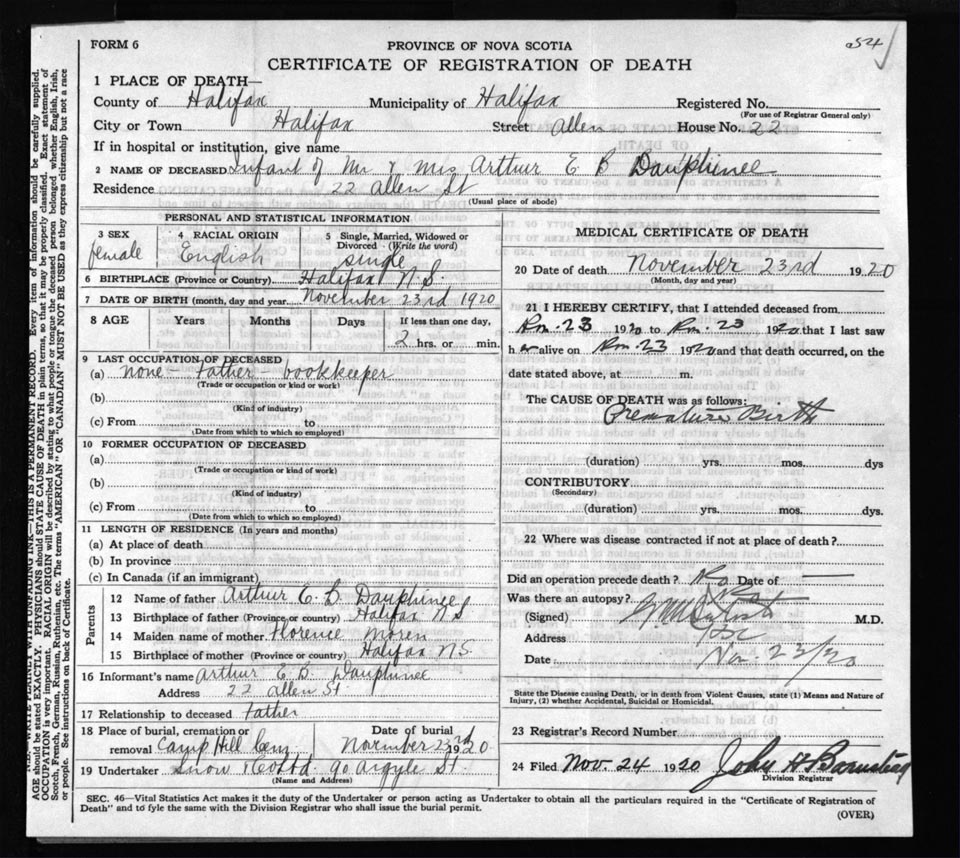 FORM 6
PROVINCE OF NOVA SCOTIA
254
CERTIFICATE OF REGISTRATION OF DEATH
1 PLACE OF DEATH—
County of Halifax Municipality of Halifax Registered No.
(For use of Registrar General only)
City or Town Halifax Street Allen House No. 22
If in hospital or institution, give name
2 NAME OF DECEASED Infant of Mr & Mrs Arthur E B Dauphinee
Residence 22 Allen St
(Usual place of abode)
PERSONAL AND STATISTICAL INFORMATION
3 SEX female
4 RACIAL ORIGIN English
5 Single, Married, Widowed or Divorced (Write the word) single
6 BIRTHPLACE (Province or Country) Halifax N S.
7 DATE OF BIRTH (month, day and year) November 23rd 1920
8 AGE Years Months Days If less than one day,
2 hrs. or min.
9 LAST OCCUPATION OF DECEASED
(a) none - Father - bookkeeper
(Trade or occupation or kind or work)
(b)
(Kind of industry)
(c) From to
(Date from which to which so employed)
10 FORMER OCCUPATION OF DECEASED
(a)
(Trade or occupation or kind or work)
(b)
(Kind of industry)
(c) From to
(Date from which to which so employed)
11 LENGTH OF RESIDENCE (In years and months)
(a) At place of death
(b) In province
(c) In Canada (if an immigrant)
Parents
12 Name of father Arthur E. B. Dauphinee
13 Birthplace of father (Province or country) Halifax N S
14 Maiden name of mother Florence Moren
15 Birthplace of mother (Province or country) Halifax N S.
16 Informant's name Arthur E B. Dauphinee
Address 22 Allen St
17 Relationship to deceased Father
18 Place of burial, cremation or removal Camp Hill Cem
Date of burial November 23rd 1920
19 Undertaker Snow & Co Ltd. 90 Argyle St.
(Name and Address)
MEDICAL CERTIFICATE OF DEATH
20 Date of death November 23rd 1920
(Month, day and year)
21 I HEREBY CERTIFY, that I attended deceased from
Nov. 23 1920 to Nov. 23 1920 that I last saw
her alive on Nov. 23 1920 and that death occurred, on the
date stated above, at m.
The CAUSE OF DEATH was as follows:
Premature Birth
(duration) yrs. mos. dys
CONTRIBUTORY
(Secondary)
(duration) yrs. mos. dys.
22 Where was disease contracted if not at place of death?
Did an operation precede death? No Date of —
Was there an autopsy? No
(Signed) M.D.
Address
Date Nov. 22/20
State the Disease causing Death, or in death from Violent Causes, state (1) Means and Nature of
Injury, (2) whether Accidental, Suicidal or Homicidal.
23 Registrar's Record Number
24 Filed Nov 24 1920 John H Barnstead
Division Registrar
SEC. 46—Vital Statistics Act makes it the duty of the Undertaker or person acting as Undertaker to obtain all the particulars required in the "Certificate of Registration of
Death" and to fyle the same with the Division Registrar who shall issue the burial permit.
(OVER)
WRITE PLAINLY WITH UNFADING INK—THIS IS A PERMANENT RECORD. Every item of information should be carefully supplied.
AGE should be stated EXACTLY. PHYSICIANS should STATE CAUSE OF DEATH in plain terms, so that it may be properly classified. Exact statement of
OCCUPATION is very important. RACIAL ORIGIN will be described by stating to what people or tongue the deceased person belonged whether English, Irish,
Scotch, French, German, Russian, Ruthenian, etc. The terms "AMERICAN" OR "CANADIAN" MUST NOT BE USED as they express citizenship but not a race
or people. See instructions on back of Certificate.